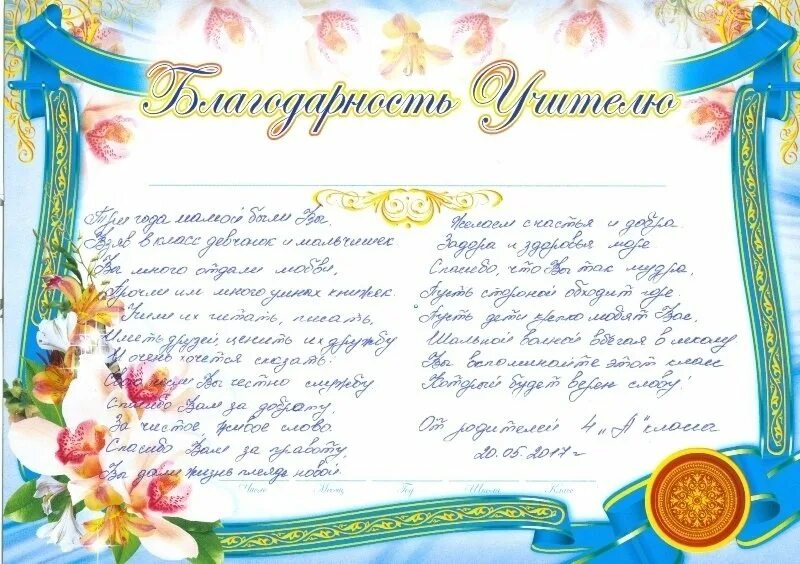 Благодарность Учителю
Три года мамой были Вы,
Взяв в класс девчонок и мальчишек
Вы много отдали любви,
Прочли им много умных книжек.
Учили их читать, писать,
Иметь друзей, ценить их дружбу
И очень хочется сказать:
Свою несли Вы честно службу
Спасибо Вам за доброту,
За чистое, живое слово
Спасибо Вам за правоту,
Вы дали жизнь плеяде новой.
Желаем счастья и добра.
Задора и здоровья море
Спасибо, что Вы так мудра,
Пусть стороной обходит горе
Пусть дети крепко любят Вас,
Шальной волной вбегая в школу
Вы вспоминайте этот класс
Который будет верен слову!
От родителей 4 „А" класса
20.05.2017 г
Число Месяц Год Школа Класс